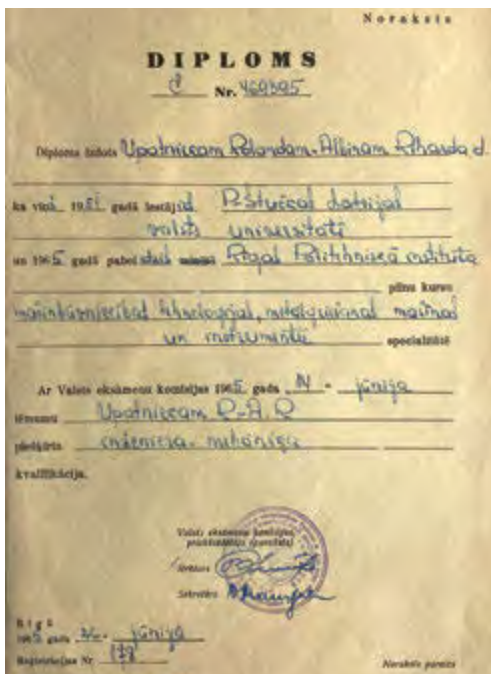 Noraksts
DIPLOMS
Nr. 469395
Diploms izdots Upatniecam Rolandam-Albinam Riharda d.
ka viņš 19 gadā iestājies P. Stučkas Latvijas
valsts universitātē
un 1965 gadā pabeidzis Rīgas Politehniskā institūta
pilnu kursu
mašīnbūvniecības tehnoloģijas, metālgriešanas mašīnas
un instrumenti specialitātē
Ar Valsts eksāmenu komisijas 1965. gada 14 - jūnija
lēmumu Upatniecam R-A. R
piešķirta inženiera-mehāniķa
kvalifikācija.
Valsts eksāmenu komisijas
priekšsēdētājs (paraksts)
Rektors
Sekretārs
Rīgā
1965 gada 26 - jūnijā
Reģistrācijas Nr 178
Noraksts pareizs